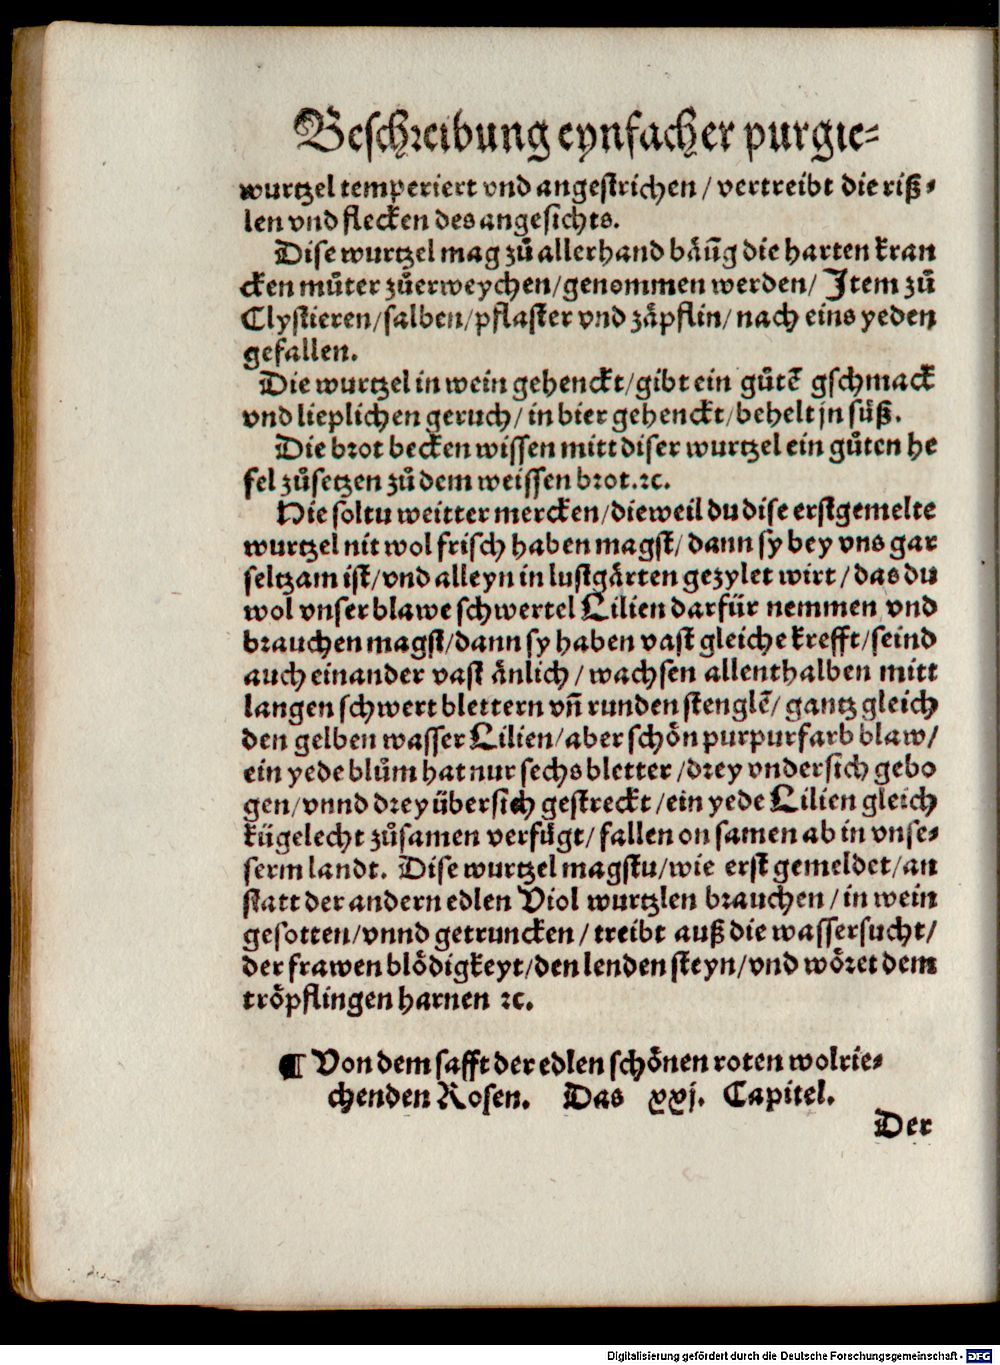 Beschreibung eynfacher purgie⸗
wurtzel temperiert vnd angestrichen / vertreibt die riß⸗
len vnd flecken des angesichts.
Dise wurtzel mag zů allerhand bäüg die harten kran
cken můter zůerweychen/genommen werden/ Item zů
Clystieren/salben/pflaster vnd zäpflin/ nach eins yeden
gefallen.
Die wurtzel in wein gehenckt/gibt ein gůtē gschmack
vnd lieplichen geruch/ in bier gehenckt/behelt jn süß.
Die brot becken wissen mitt diser wurtzel ein gůten he
fel zůsetzen zů dem weissen brot.ꝛc.
Hie soltu weitter mercken/dieweil du dise erstgemelte
wurtzel nit wol frisch haben magst/ dann sy bey vns gar
seltzam ist/vnd alleyn in lustgärten gezylet wirt / das du
wol vnser blawe schwertel Lilien darfür nemmen vnd
brauchen magst/dann sy haben vast gleiche krefft/seind
auch einander vast änlich / wachsen allenthalben mitt
langen schwert blettern vñ runden stenglē/ gantz gleich
den gelben wasser Lilien/aber schön purpurfarb blaw/
ein yede blům hat nur sechs bletter /drey vndersich gebo
gen/vnnd drey übersich gestreckt /ein yede Lilien gleich
kügelecht zůsamen verfügt/ fallen on samen ab in vnse⸗
serm landt. Dise wurtzel magstu/wie erst gemeldet/an
statt der andern edlen Viol wurtzlen brauchen / in wein
gesotten/vnnd getruncken / treibt auß die wassersucht/
der frawen blödigkeyt/den lenden steyn/vnd wöret dem
tröpflingen harnen ꝛc.
¶ Von dem safft der edlen schönen roten wolrie⸗
chenden Rosen. Das xxj. Capitel.
Der
Digitalisierung gefördert durch die Deutsche Forschungsgemeinschaft - DFG